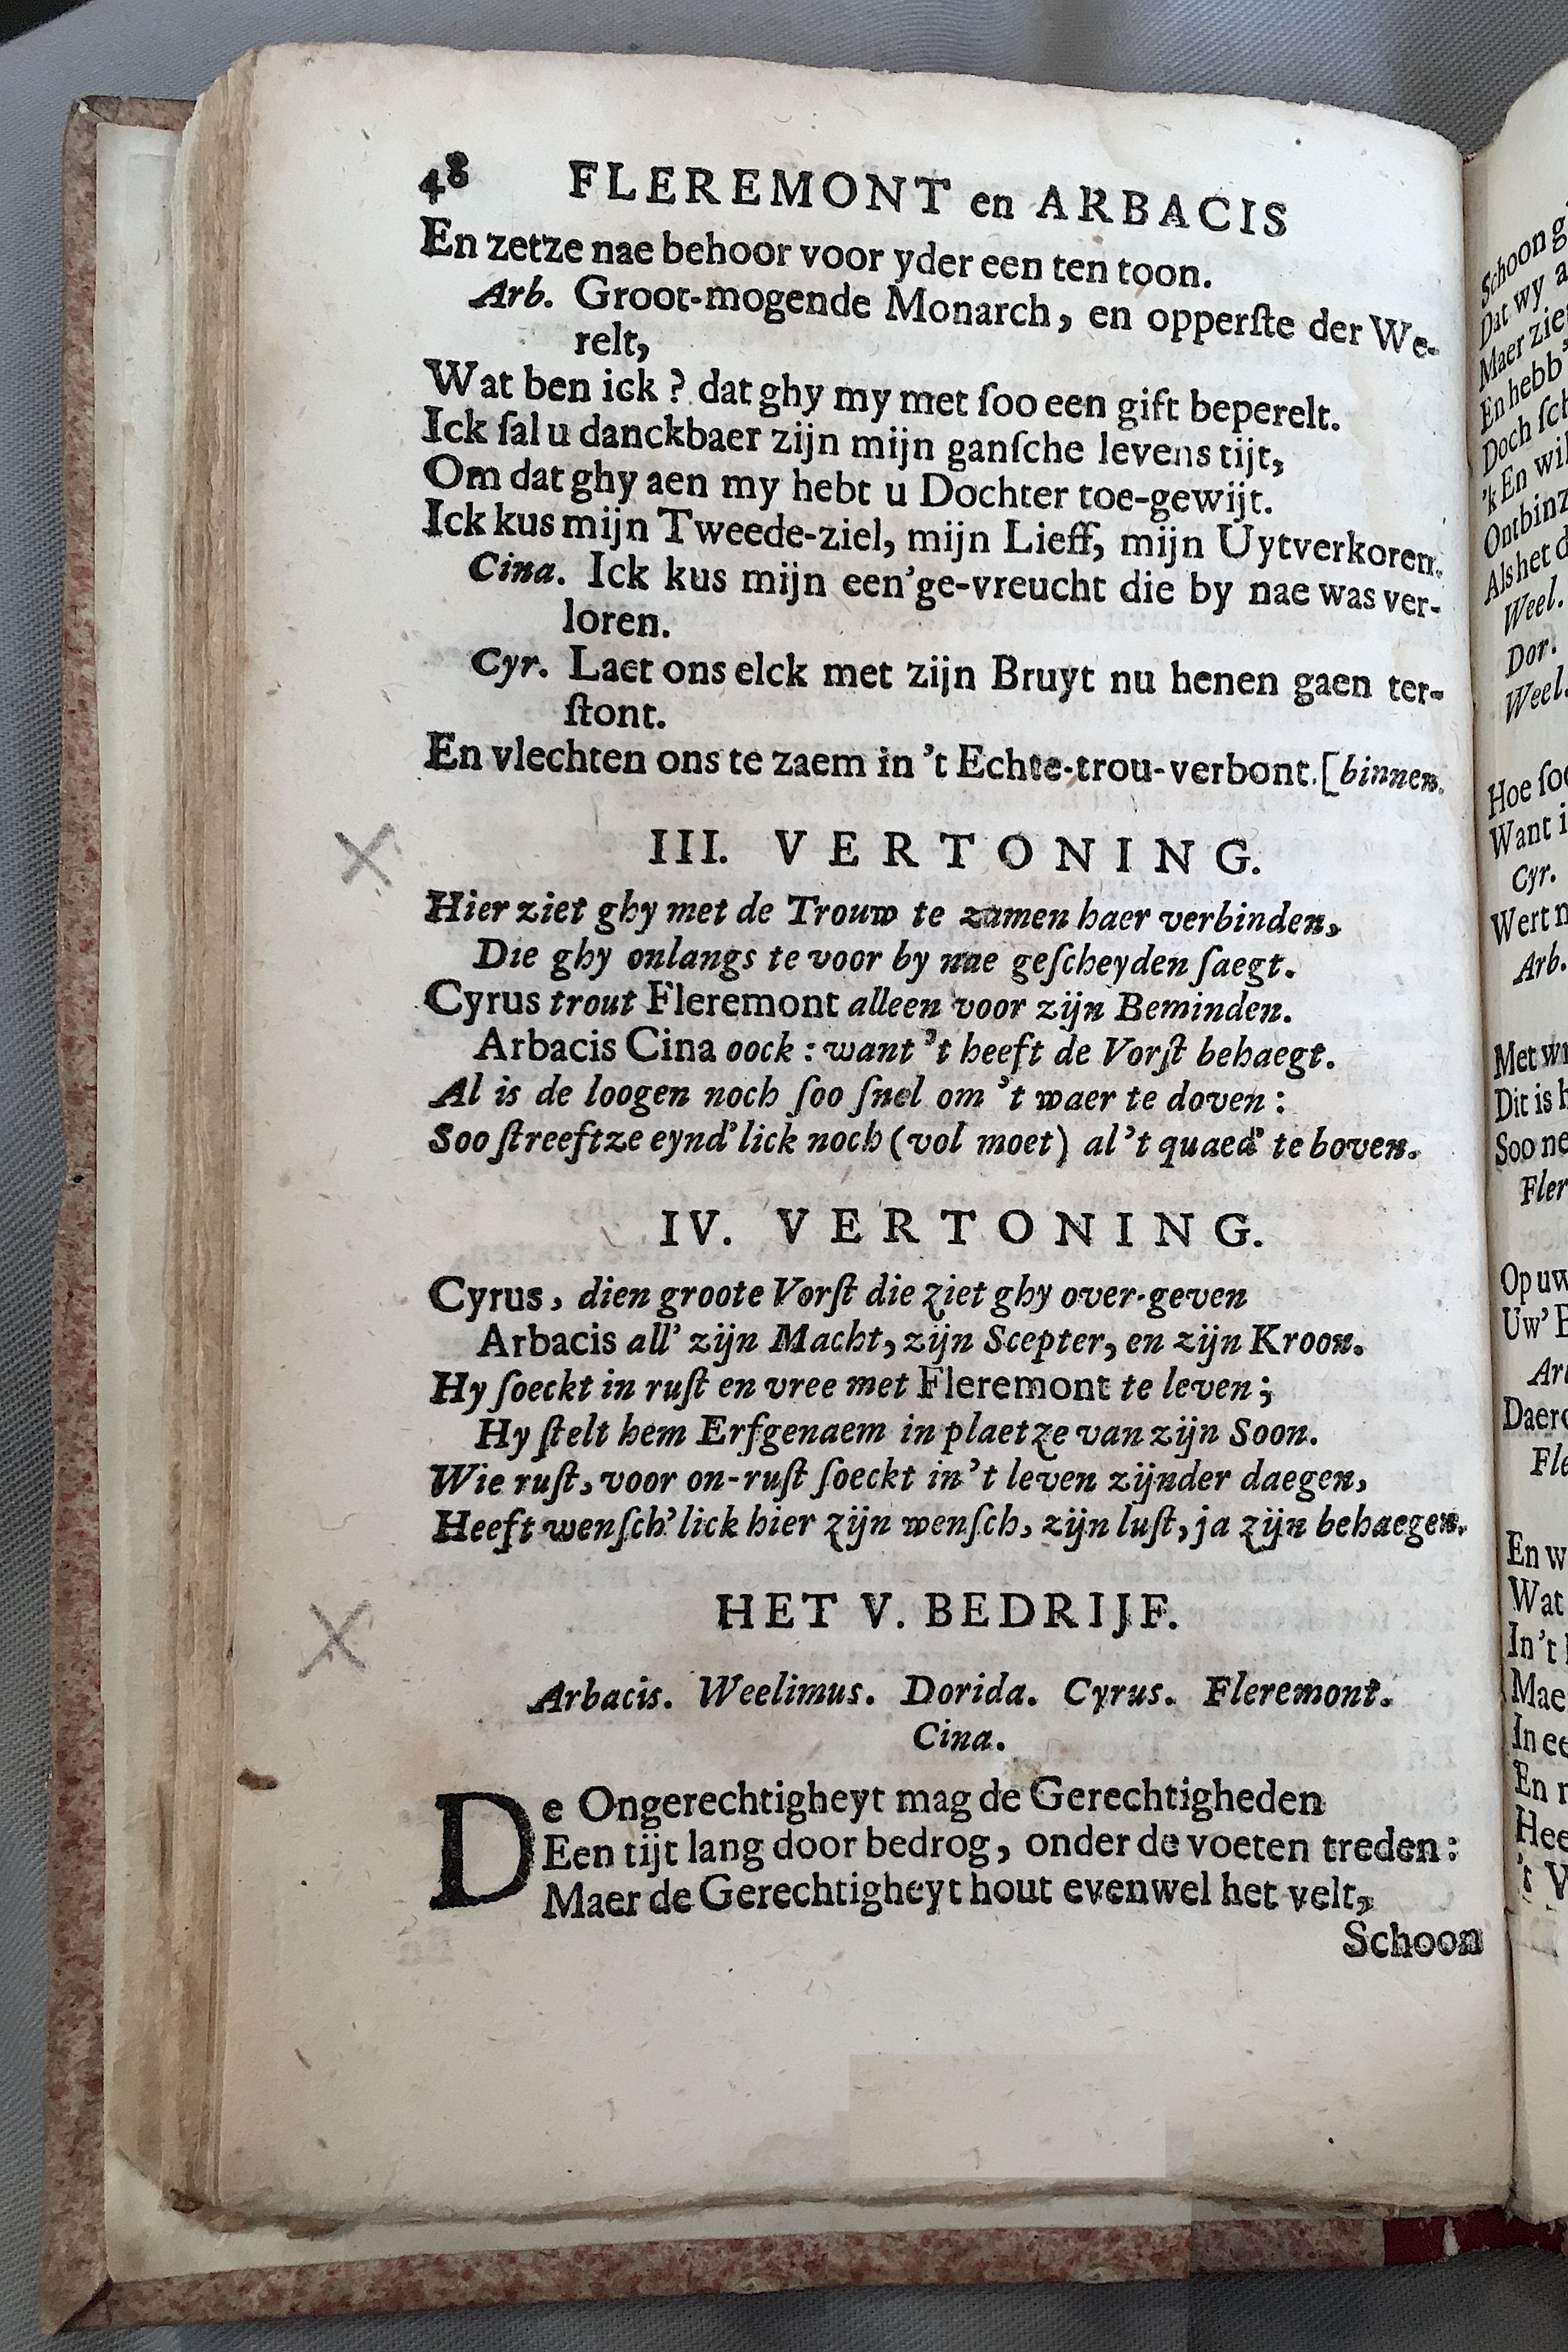 48 FLEREMONT en ARBACIS
En zetze nae behoor voor yder een ten toon.
Arb. Groot-mogende Monarch, en opperſte der We-
relt,
Wat ben ick? dat ghy my met ſoo een gift beperelt.
Ick ſal u danckbaer zijn mijn ganſche levens tijt,
Om dat ghy aen my hebt u Dochter toe-gewijt.
Ick kus mijn Tweede-ziel, mijn Lieff, mijn Uytverkoren.
Cina. Ick kus mijn een'ge-vreucht die by nae was ver-
loren.
Cyr. Laet ons elck met zijn Bruyt nu henen gaen ter-
ſtont.
En vlechten ons te zaem in 't Echte-trou-verbont. [binnen.
III. VERTONING.
Hier ziet ghy met de Trouw te zamen haer verbinden,
Die ghy onlangs te voor by nae geſcheyden ſaegt.
Cyrus trout Fleremont alleen voor zijn Beminden.
Arbacis Cina oock: want 't heeft de Vorſt behaegt.
Al is de loogen noch ſoo ſnel om 't waer te doven:
Soo ſtreeftze eynd'lick noch (vol moet) al 't quaed' te boven.
IV. VERTONING.
Cyrus, dien groote Vorſt die ziet ghy over-geven
Arbacis all' zijn Macht, zijn Scepter, en zijn Kroon.
Hy ſoeckt in ruſt en vree met Fleremont te leven;
Hy ſtelt hem Erfgenaem in plaetze van zijn Soon.
Wie ruſt, voor on-ruſt ſoeckt in 't leven zijnder daegen,
Heeft wenſch'lick hier zijn wenſch, zijn luſt, ja zijn behaegen.
HET V. BEDRIJF.
Arbacis. Weelimus. Dorida. Cyrus. Fleremont.
Cina.
De Ongerechtigheyt mag de Gerechtigheden
Een tijt lang door bedrog, onder de voeten treden:
Maer de Gerechtigheyt hout evenwel het velt,
Schoon
Schoon
Dat wy
Maer
En hebb'
Doch
'k En
Als het
Weel.
Dor.
Weel.
Hoe
Want
Cyr.
Wert
Arb.
Met
Dit is
Soo
Op
Uw'
En
Wat
In 't
En
't